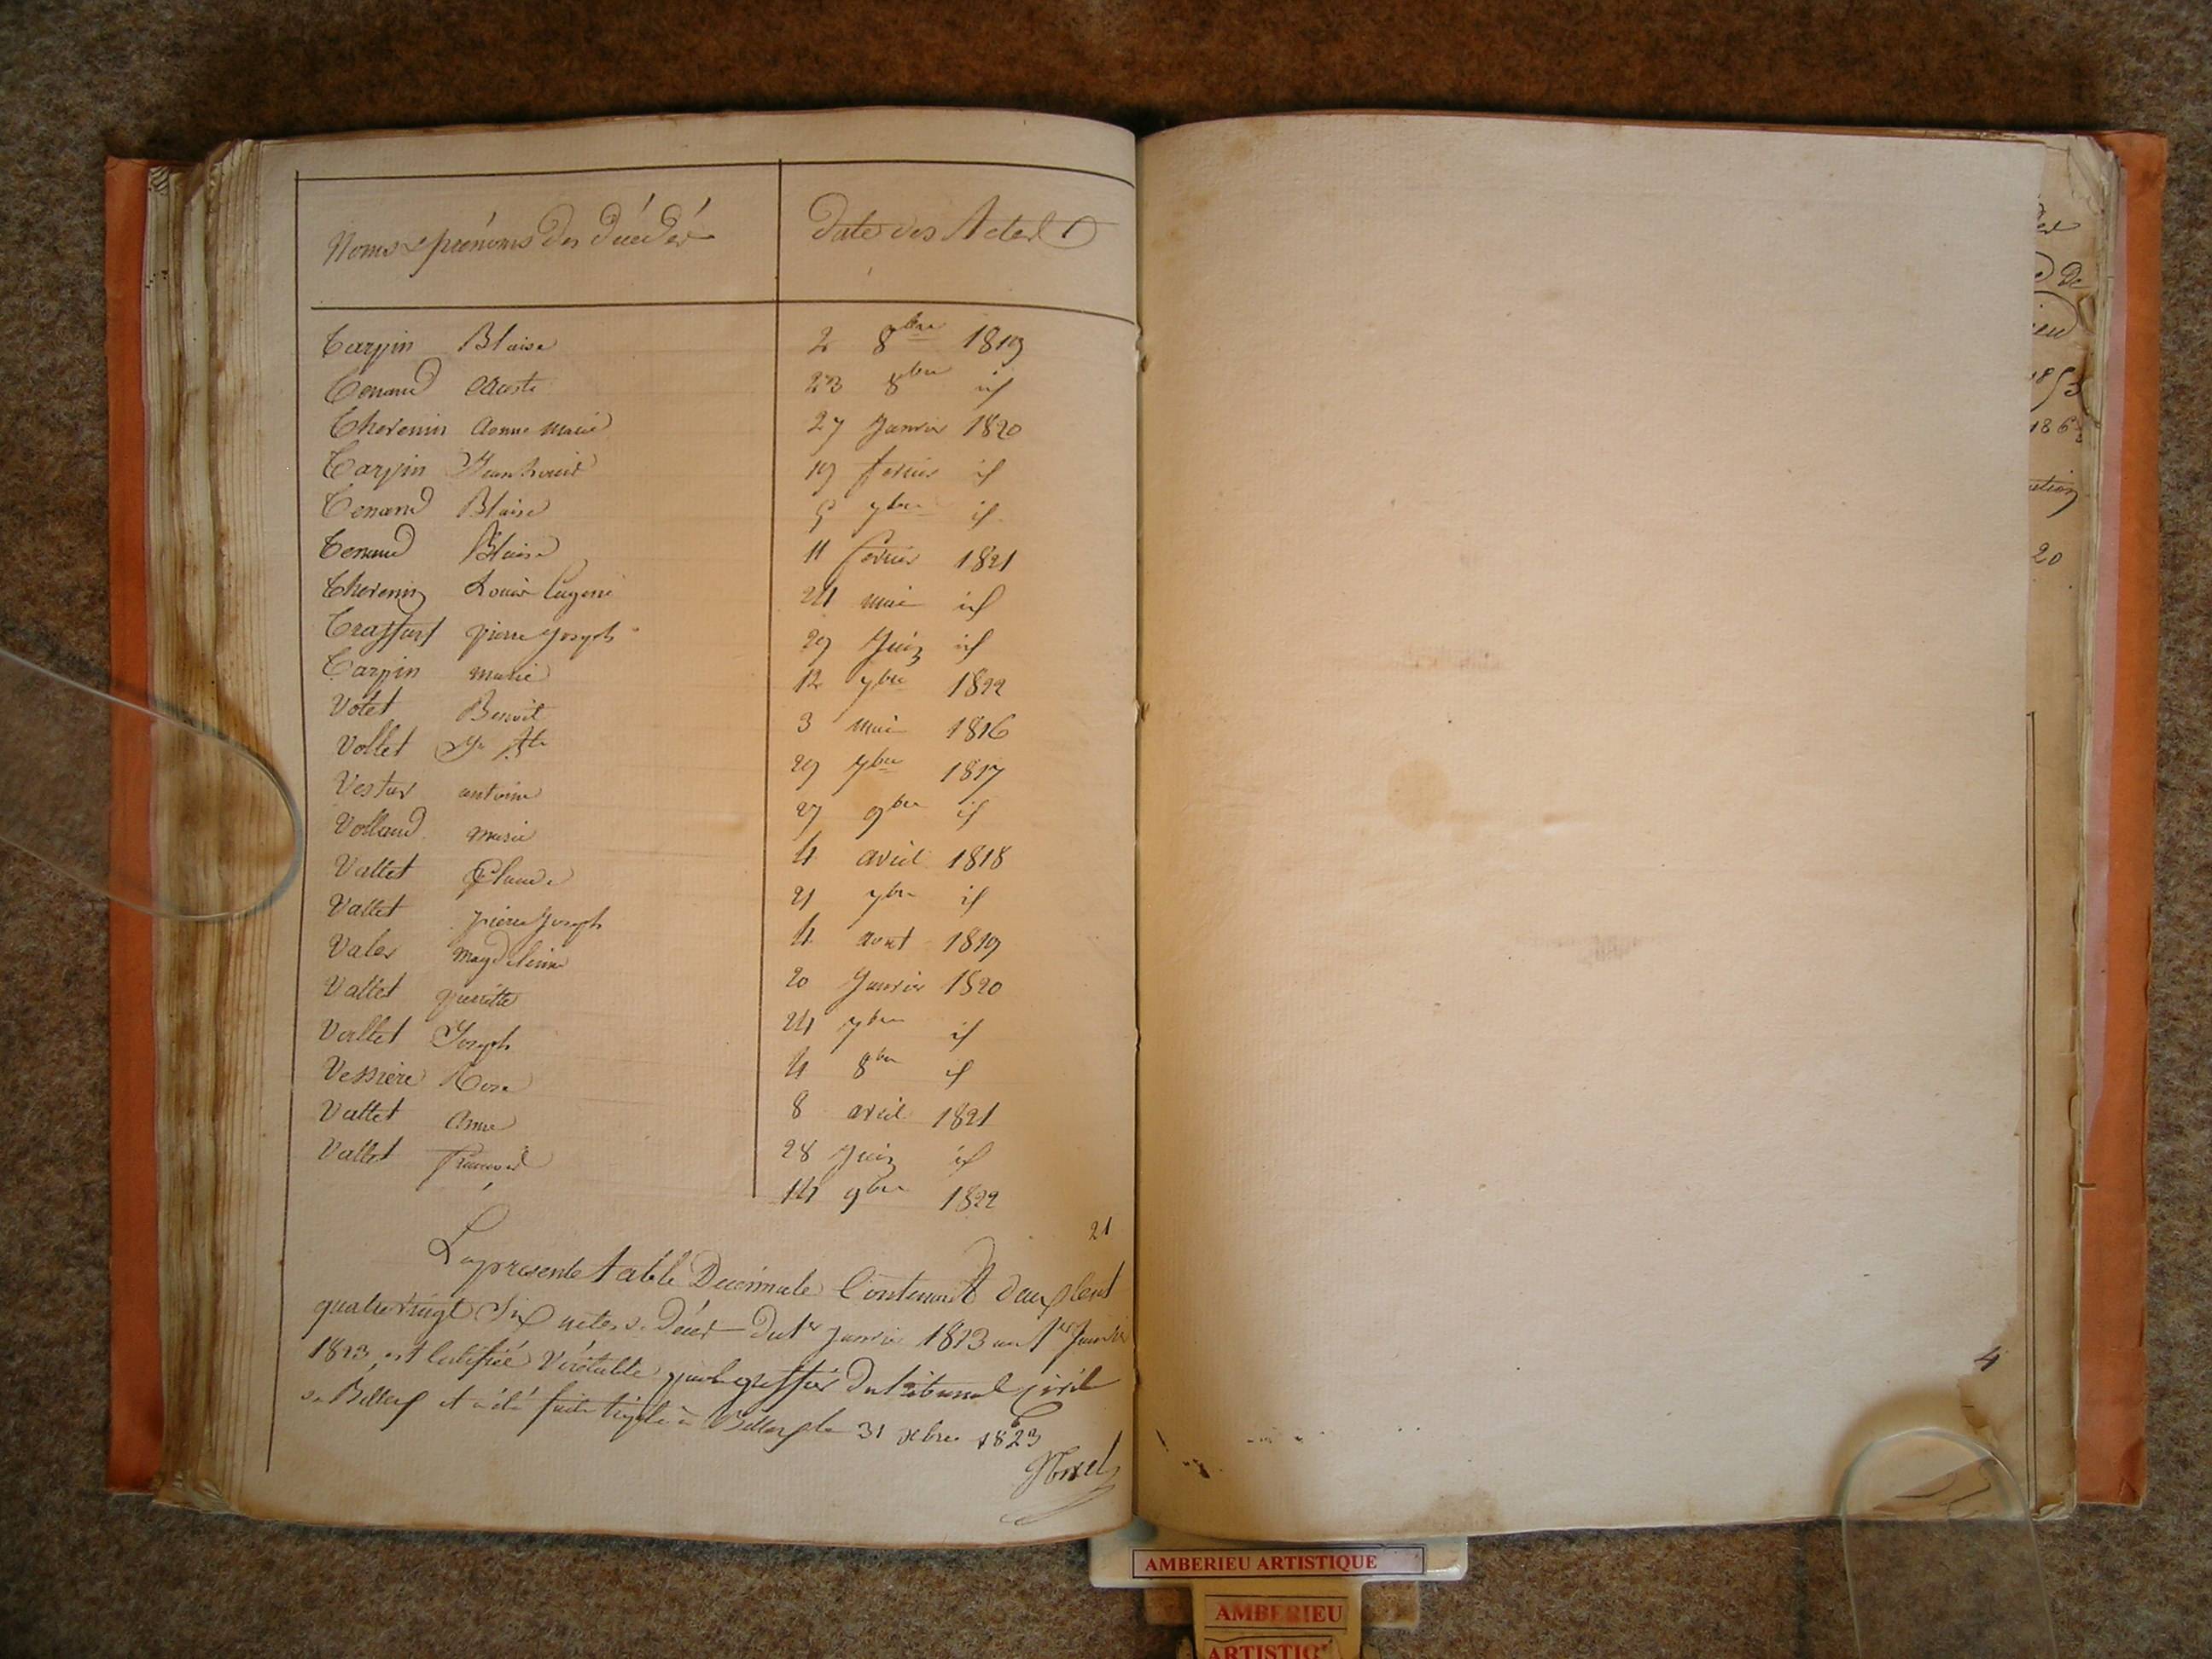 Noms & prénoms des décédés Dates des Actes
Carpin Blaise 2 8bre 1819
Tenand 23 8bre id
Thevenin Anne Marie 27 Janvier 1820
Carpin Jean Louis 19 fevrier id
Tenand Blaise 5 7bre id
Tenand Blaise 11 fevrier 1821
Thevenin Louis Eugene 24 mai id
Pierre Joseph 29 Juin id
Carpin Marie 12 7bre 1822
Votet Benoit 3 mai 1816
Vollet Jn Bte 29 7bre 1817
antoine 27 9bre id
Volland Marie 4 avril 1818
Vallet Claude 21 7bre id
Vallet pierre Joseph 4 aout 1819
Valer Magdeleine 20 Janvier 1820
Vallet pierrette 24 7bre id
Vallet Joseph 4 8bre id
Vessiere Rose 8 avril 1821
Vallet Anne 28 Juin id
Vallet François 14 9bre 1822
21
La presente table Decennale Contenant deux Cent
quatrevingt Six actes de Décès du 1er janvier 1813 au 1er Janvier
1823, est Certifiée Véritable par le greffier du tribunal Civil
de Belley et a été faite triple à Belley le 31 Xbre 1823
4
De
1853
186
20
AMBERIEU ARTISTIQUE
AMBERIEU
ARTISTIQ